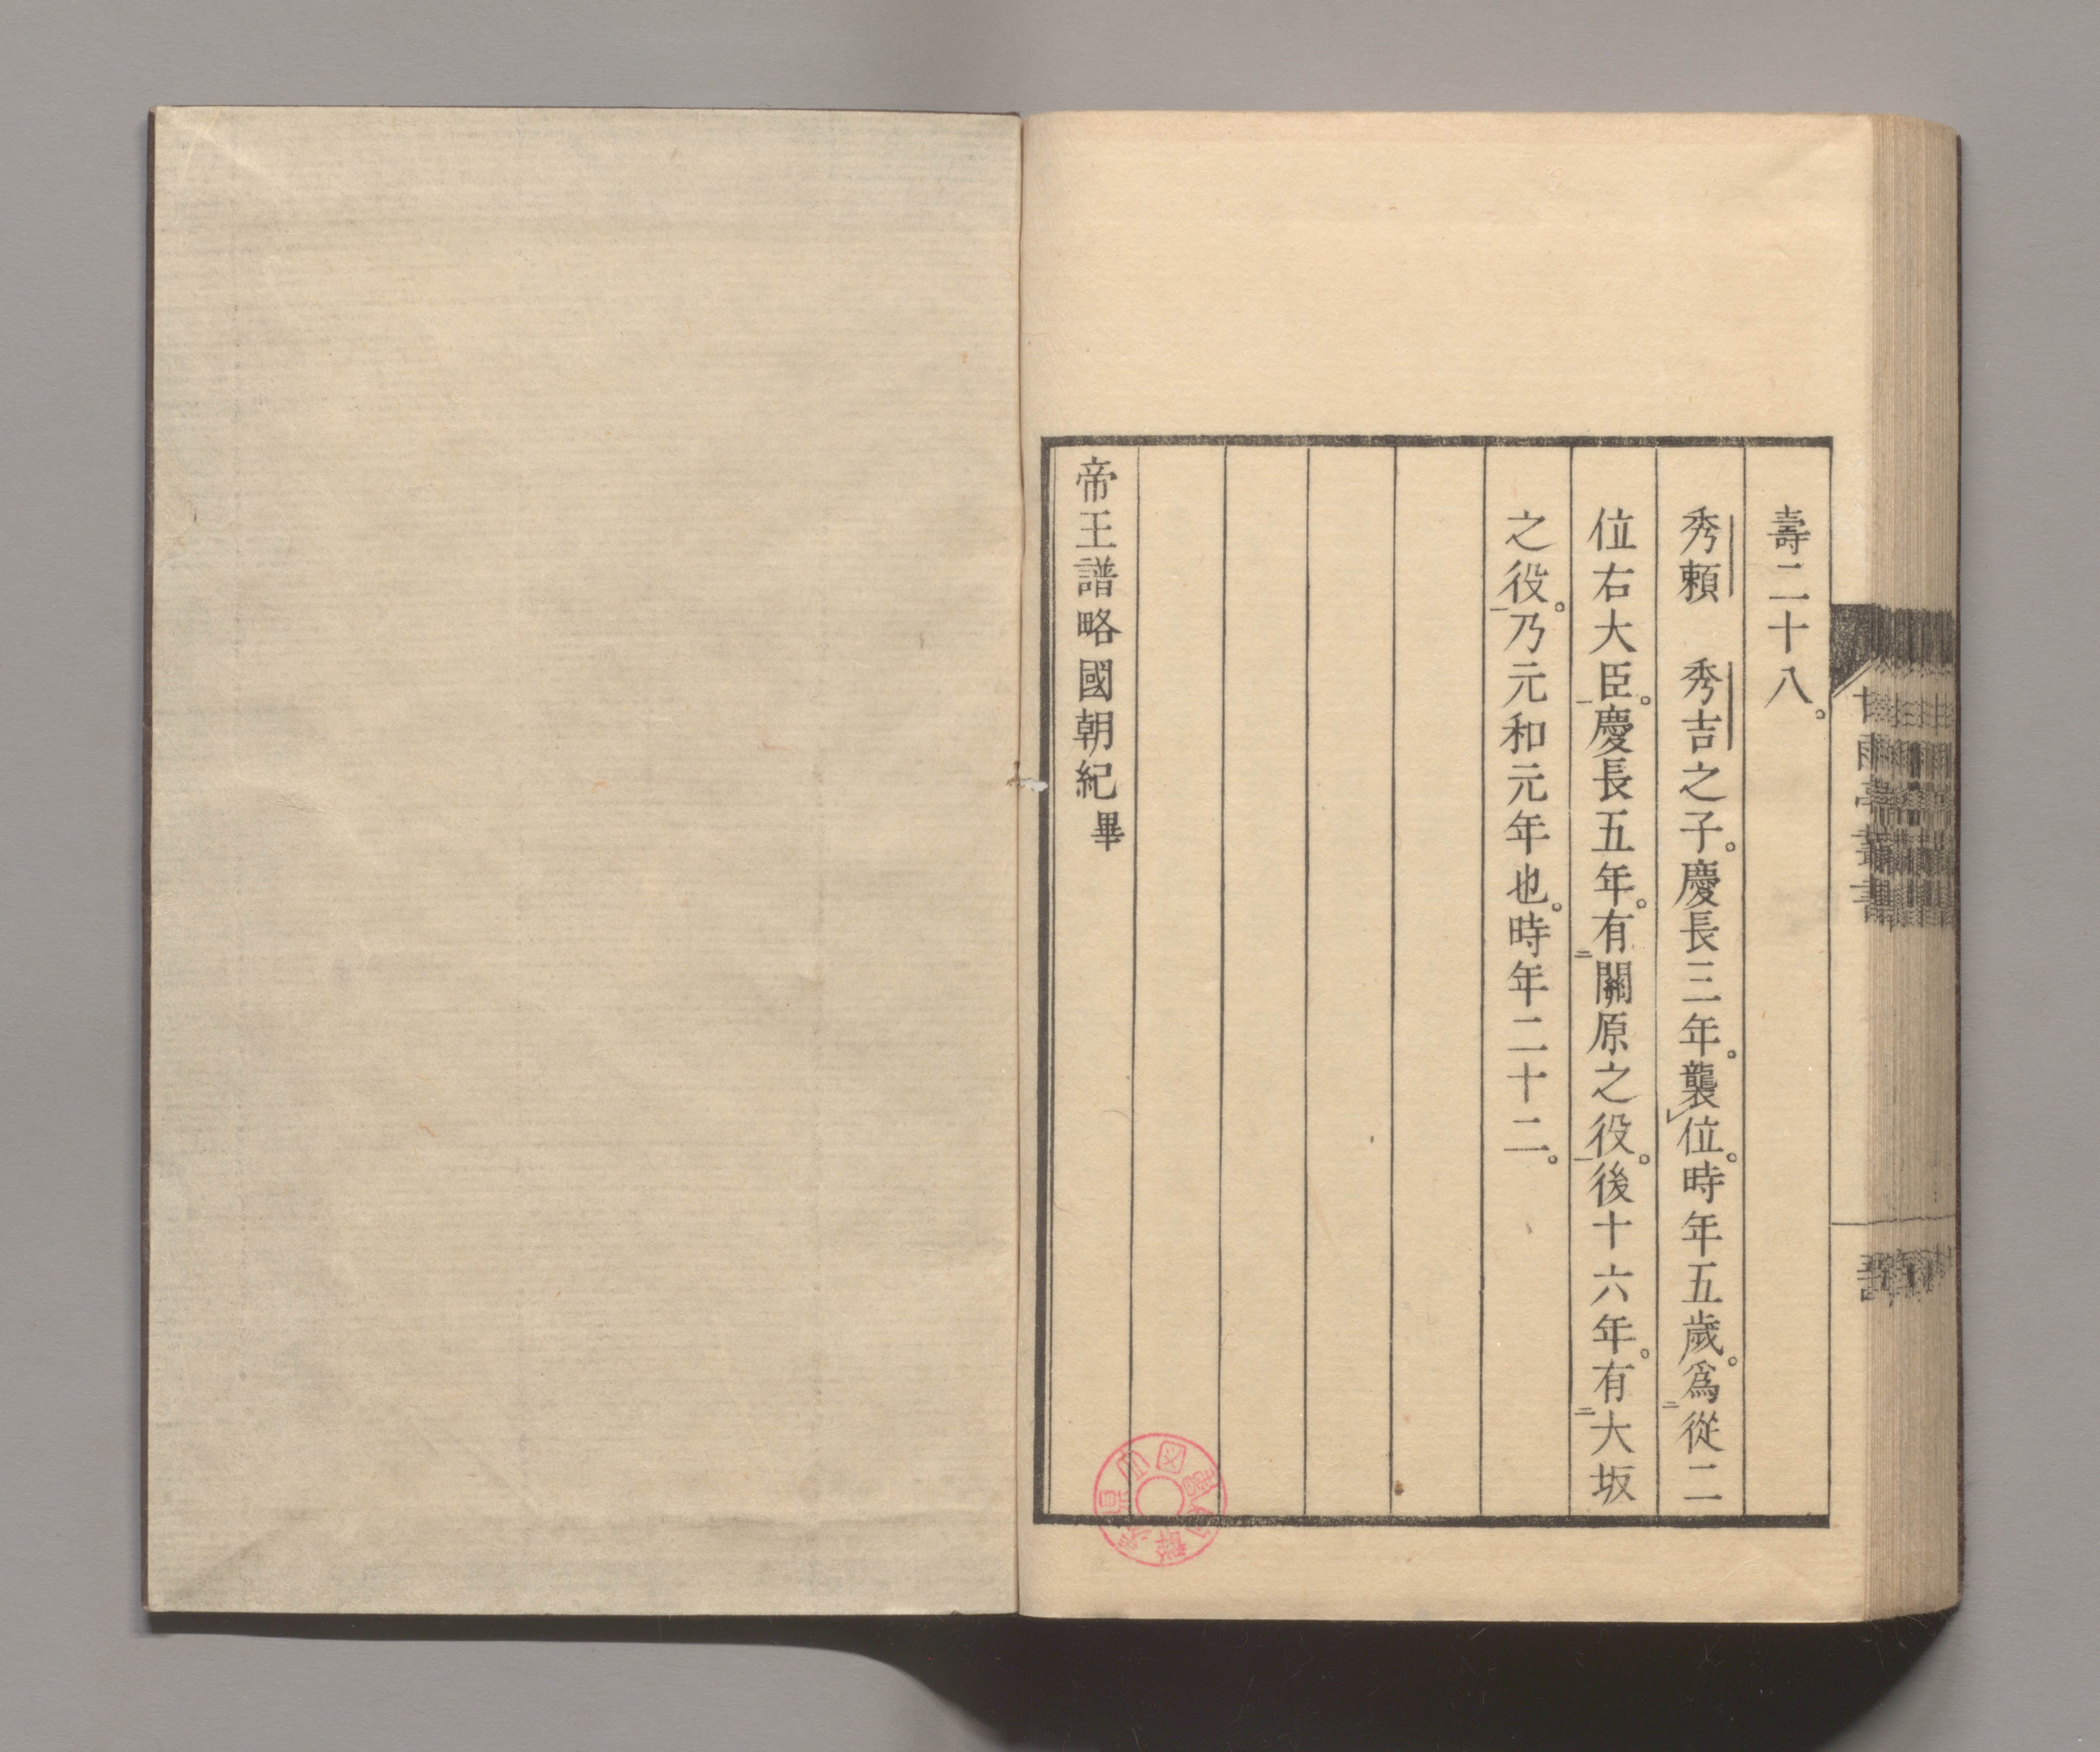 壽二十八。
秀頼　秀吉之子。慶長三年。襲レ位。時年五歲。爲二從二
位右大臣一。慶長五年。有二關原之役一。後十六年。有二大坂
之役一。乃元和元年也。時年二十二。
帝王譜略國朝紀畢
甘雨亭叢書